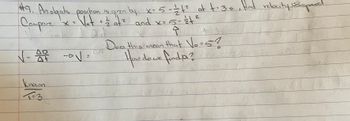 #9. An objects position is given by x=5-½t² at t=3s, find velocity & speed
Compare x=V₀t+½at² and x=5-½t²
↑
Does this mean that V₀=5?
V=Δp/Δt → V=
How do we find a?
Known
T=3